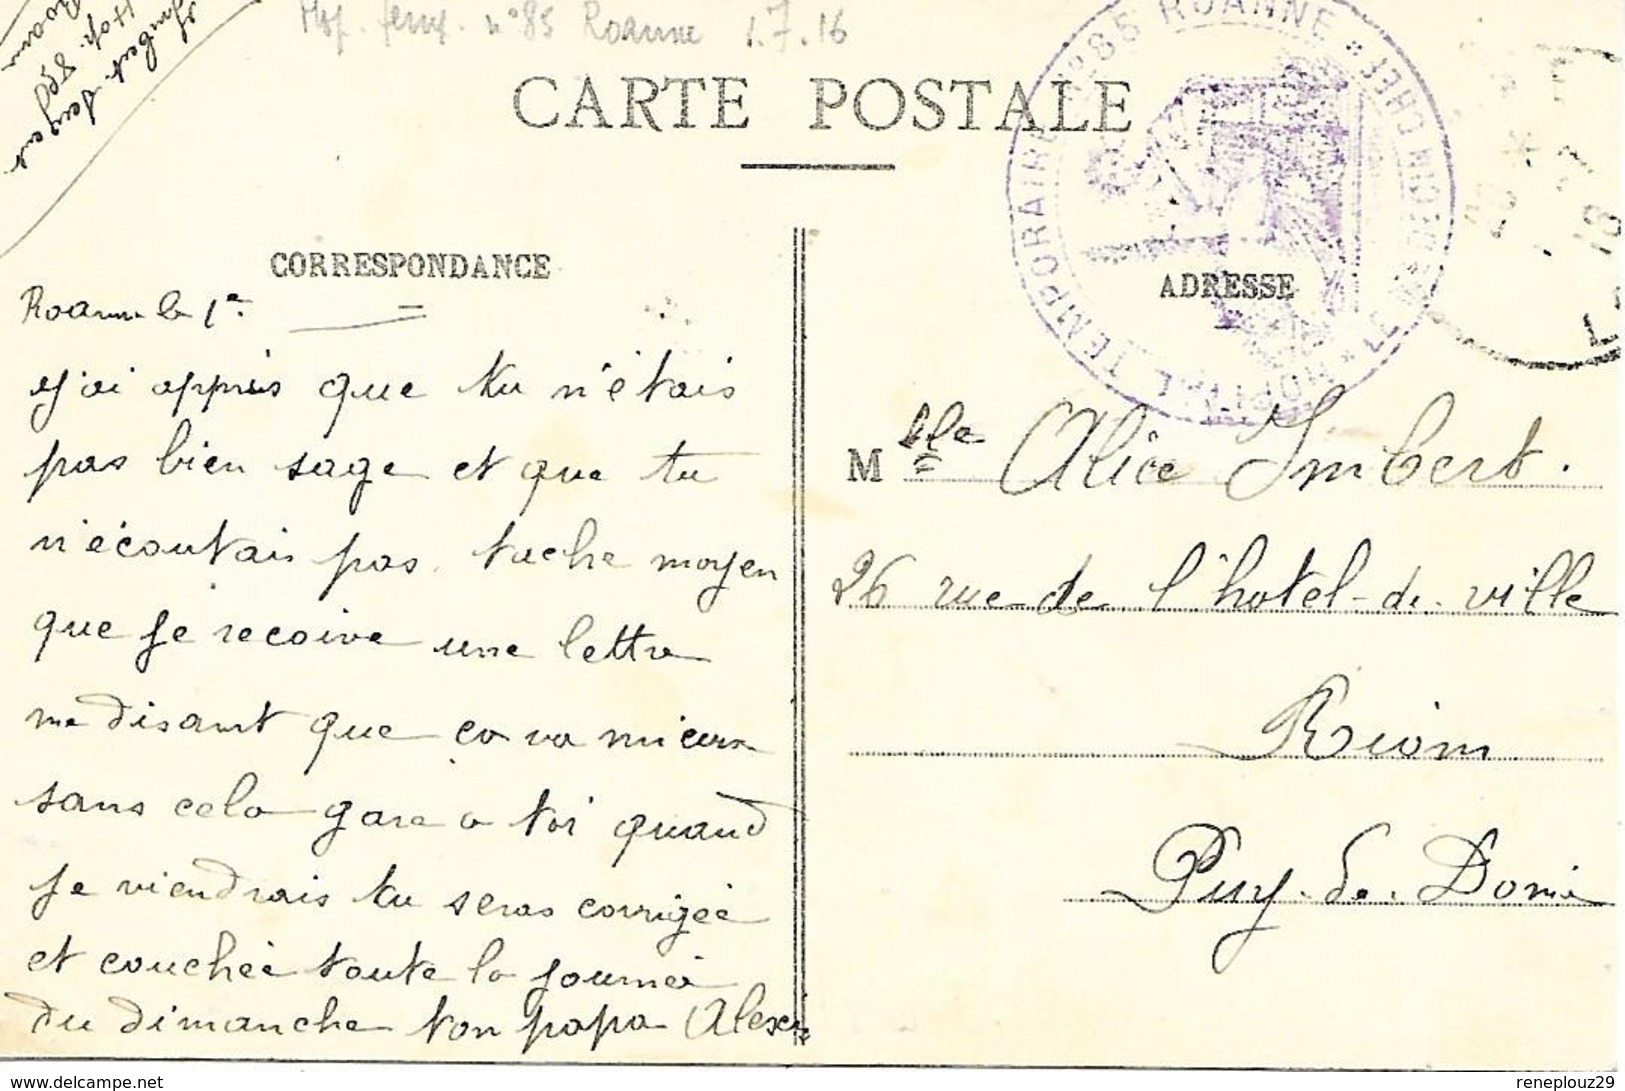 Imbert
Hop. 85
Roanne
Hop. temp. n°85 Roanne 1.7.16
CARTE POSTALE
85 ROANNE * LE MEDECIN CHEF
HOPITAL TEMPORAIRE
CORRESPONDANCE
ADRESSE
Roanne le 1er
J'ai appris que tu n'étais
pas bien sage et que tu
n'écoutais pas. tache moyen
que je recoive une lettre
me disant que ça va mieux
sans cela gare a toi quand
je viendrais tu seras corrigée
et couchée toute la journée
du dimanche ton papa Alexis
Mlle Alice Imbert.
26 rue de l'hotel-de-ville
Riom
Puy-de-Dome
delcampe.net
reneplouz29